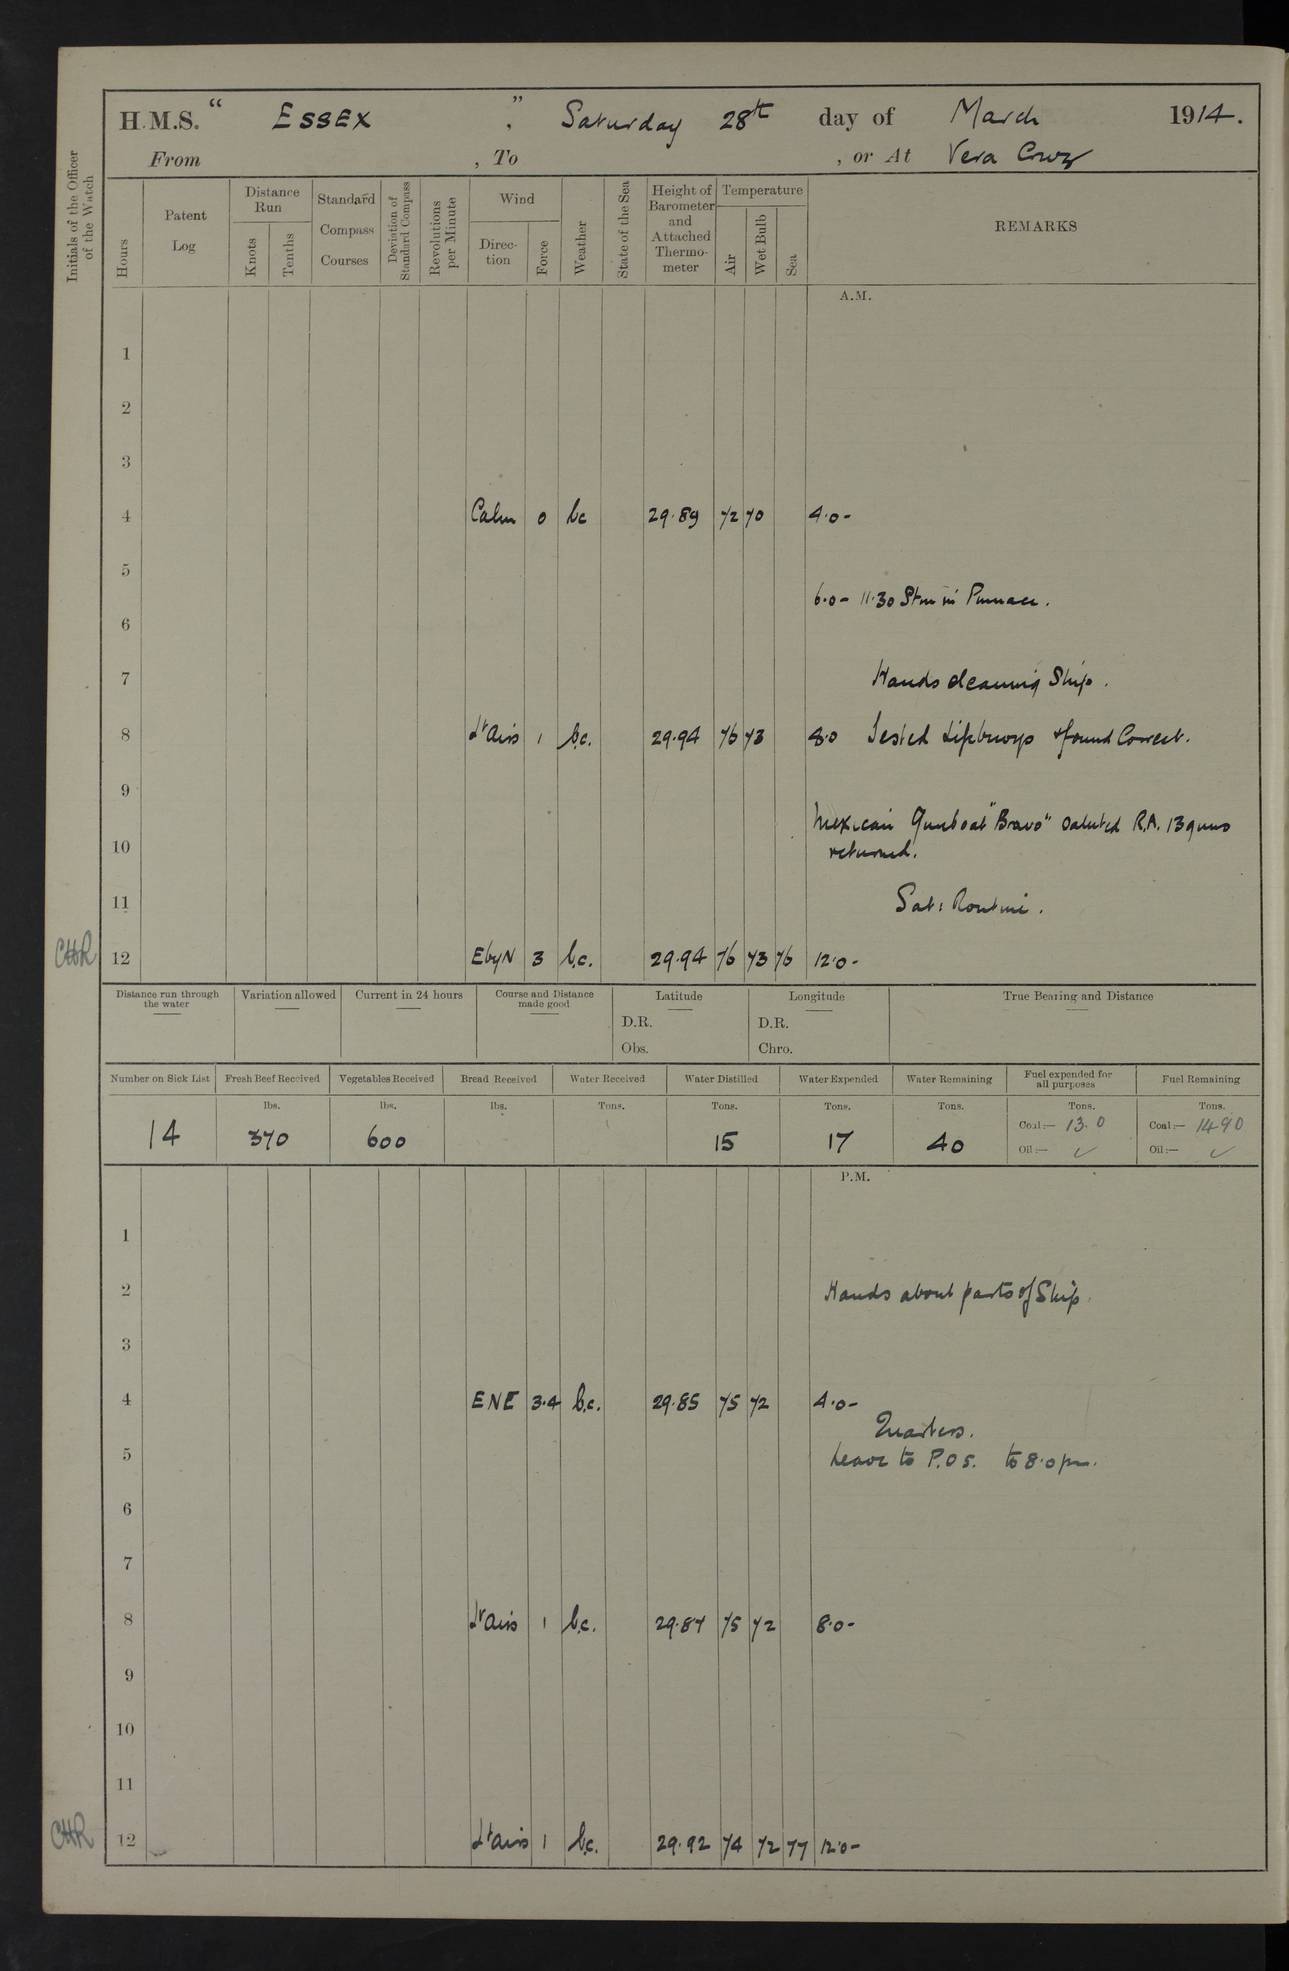 H.M.S. " ESSEX ", Saturday 28th day of March 1914.
From , To , or At Vera Cruz
Initials of the Officer of the Watch
Hours
Patent Log
Distance Run
Knots
Tenths
Standard Compass Courses
Deviation of Standard Compass
Revolutions per Minute
Wind
Direction
Force
Weather
State of the Sea
Height of Barometer and Attached Thermometer
Temperature
Air
Wet Bulb
Sea
REMARKS
A.M.
1
2
3
4 Calm 0 bc 29.89 72 70 4.0-
5
6.0- 11.30 Stm in Pinnace.
6
7 Hands cleaning Ship.
8 Lt airs 1 b.c. 29.94 76 73 8.0 Tested Lifebuoys & found Correct.
9
Mexican Gunboat "Bravo" saluted R.A. 13 guns
10 returned.
11 Sat: Routine.
CHR 12 EbyN 3 b.c. 29.94 76 73 76 12.0-
Distance run through the water
Variation allowed
Current in 24 hours
Course and Distance made good
Latitude
D.R.
Obs.
Longitude
D.R.
Chro.
True Bearing and Distance
Number on Sick List Fresh Beef Received Vegetables Received Bread Received Water Received Water Distilled Water Expended Water Remaining Fuel expended for all purposes Fuel Remaining
lbs. lbs. lbs. Tons. Tons. Tons. Tons. Tons. Tons.
14 370 600 15 17 40 Coal:— 13.0 Coal:— 1490
Oil:— ✓ Oil:— ✓
P.M.
1
2 Hands about parts of Ship.
3
4 ENE 3.4 b.c. 29.85 75 72 4.0-
Quarters.
5 Leave to P.O s. to 8.0 pm.
6
7
8 Lt airs 1 b.c. 29.87 75 72 8.0-
9
10
11
CHR 12 Lt airs 1 b.c. 29.92 74 72 77 12.0-